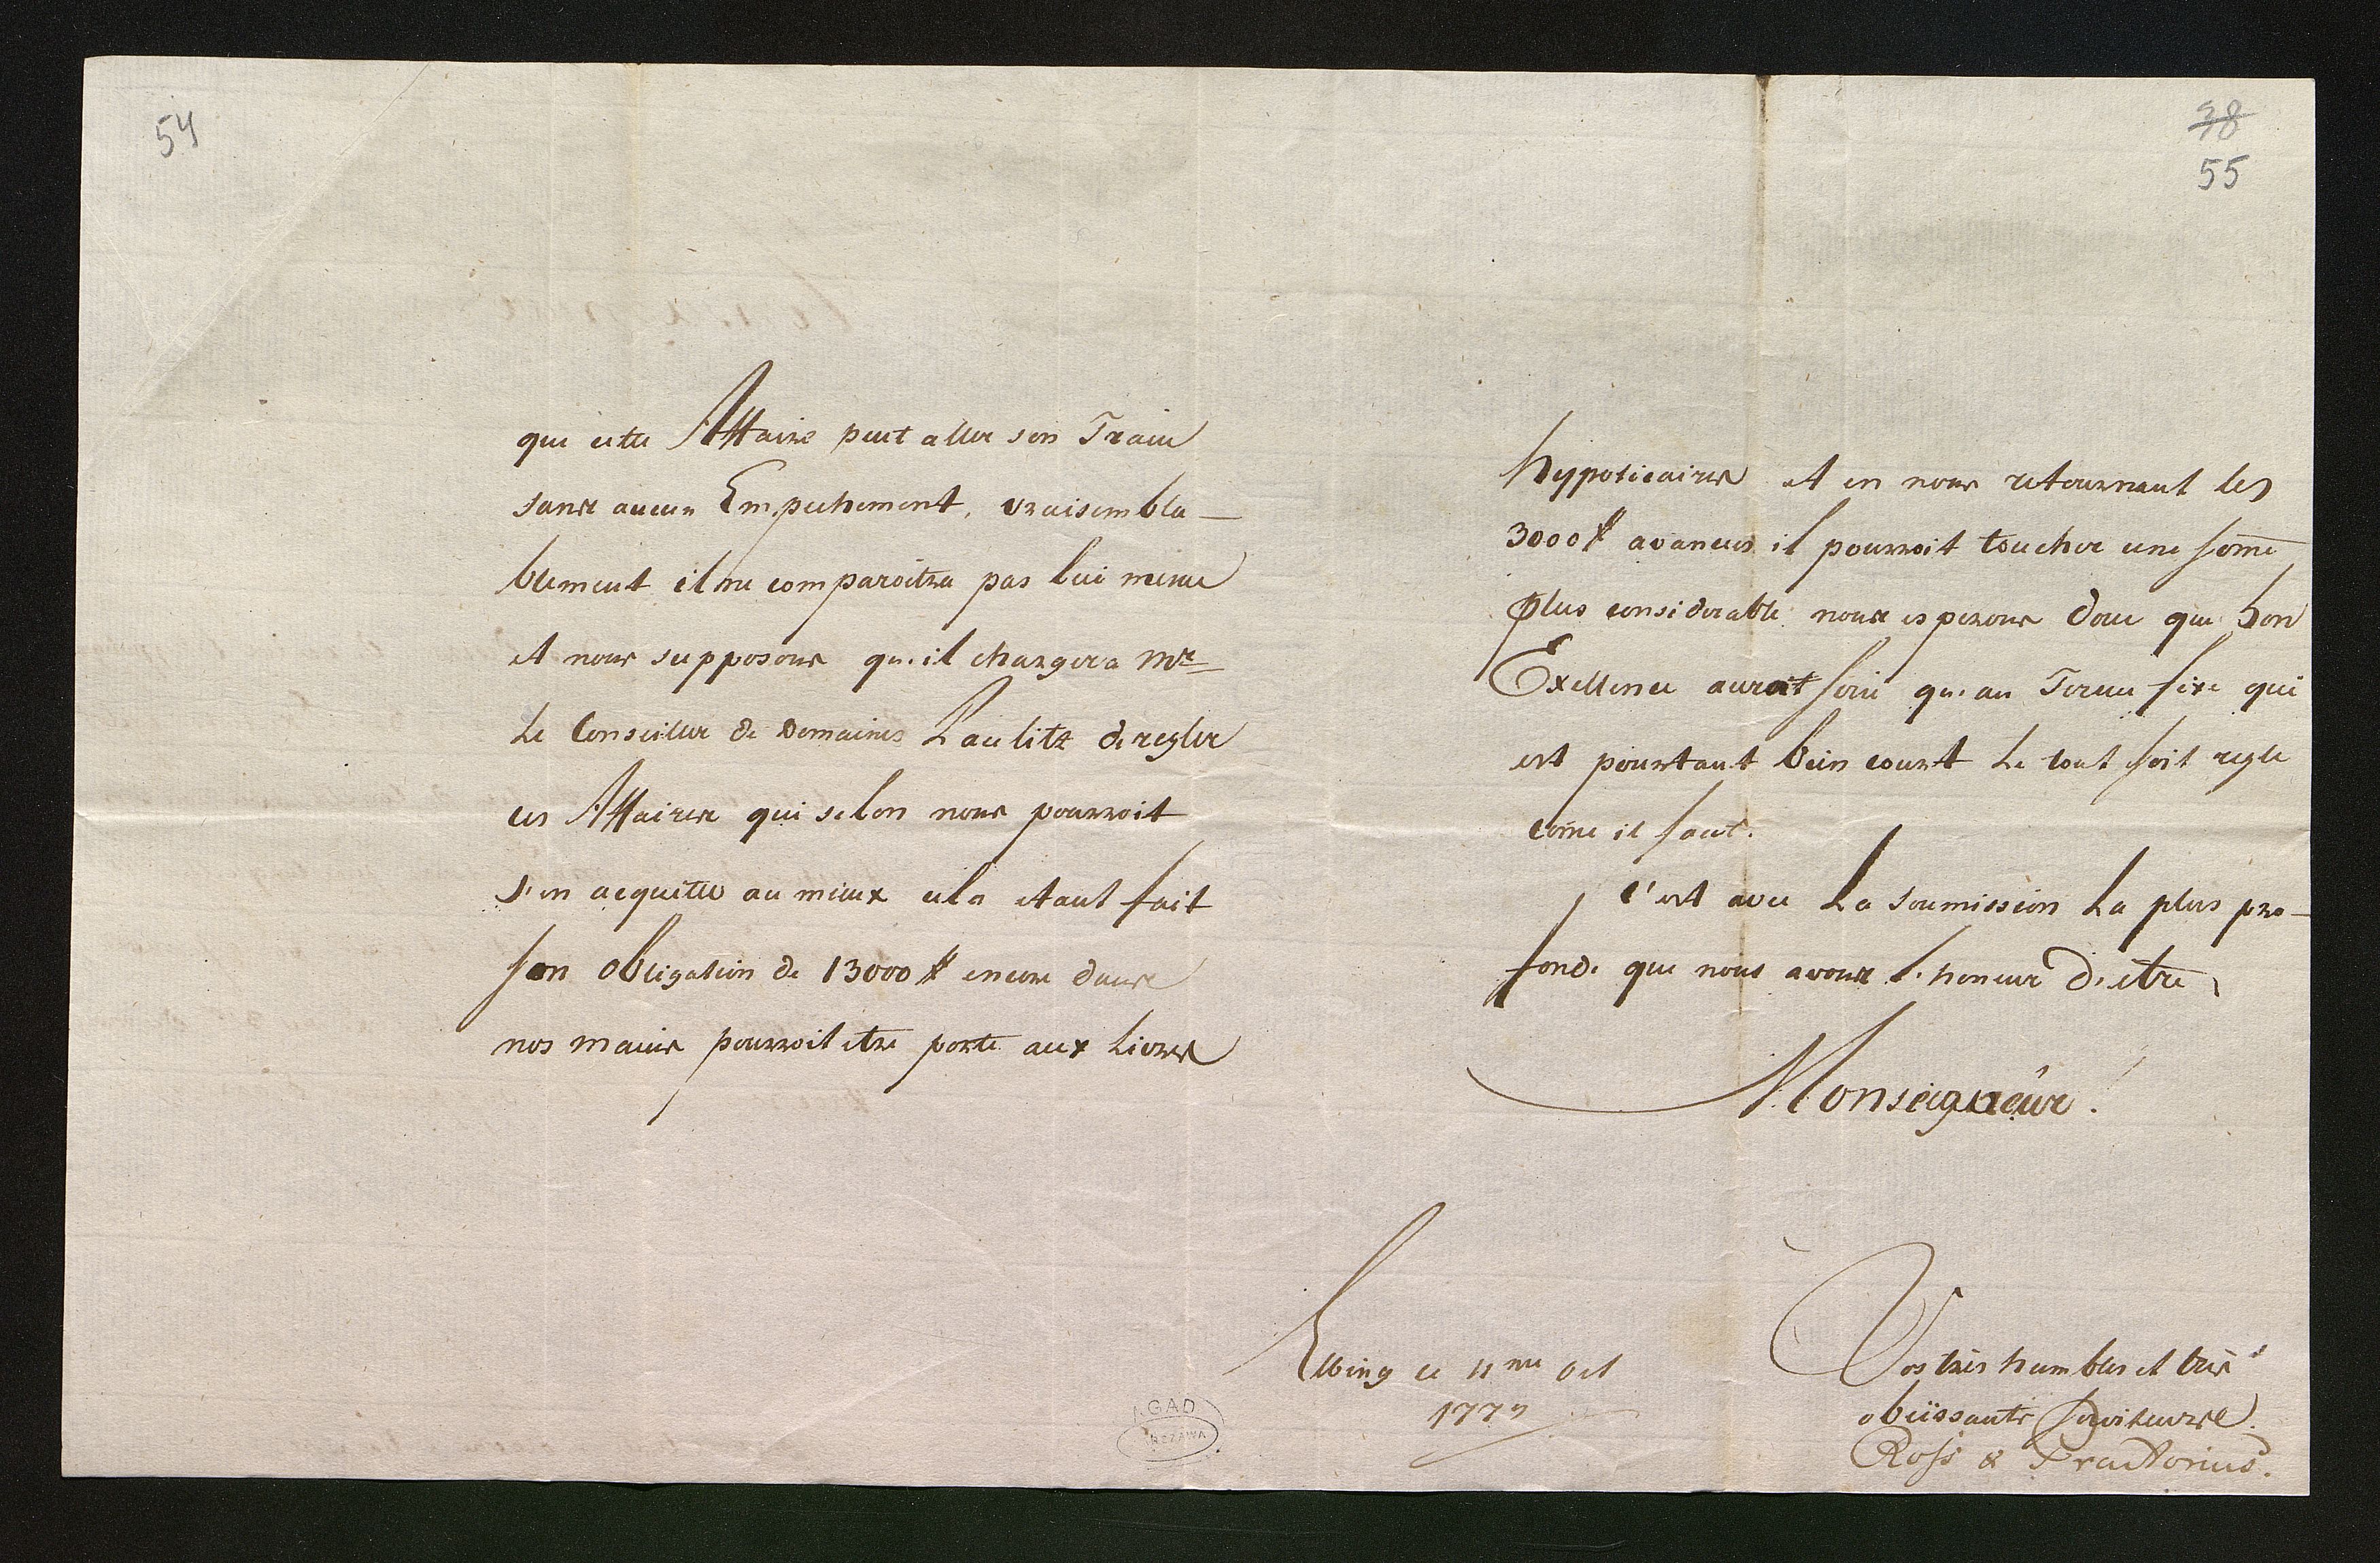 54
que cette Affaire peut aller son Train
sans aucun Empechement, vraisembla-
blement il ne comparoitra pas lui meme
et nous supposons qu'il chargera Mr
Le Conseiller de Domaines Paulitz de regler
ces Affaires qui selon nous pourroit
s'en acquitter au mieux cela etant fait
son obligation de 13000 # encore dans
nos mains pourroit etre porte aux Livres
38
55
hypoticaires et en nous retournant les
3000# avances il pourroit toucher une some
plus considerable nous esperons donc que Son
Exellence aurait soin qu'au Terme fixe qui
est pourtant bien court Le tout soit regle
come il faut.
C'est avec La soumission La plus pro-
fonde que nous avons l'honeur d'etre
Monseigneur!
Elbing ce 11me Oct
1777
Vos très humbles et très
obeissants Serviteurs
Ross & Praetorius.
AGAD
WARSZAWA